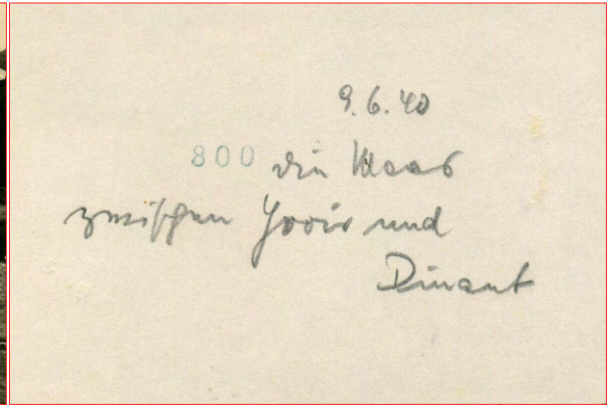 9.6.40
800 die Maas
zwischen Yvoir und
Dinant